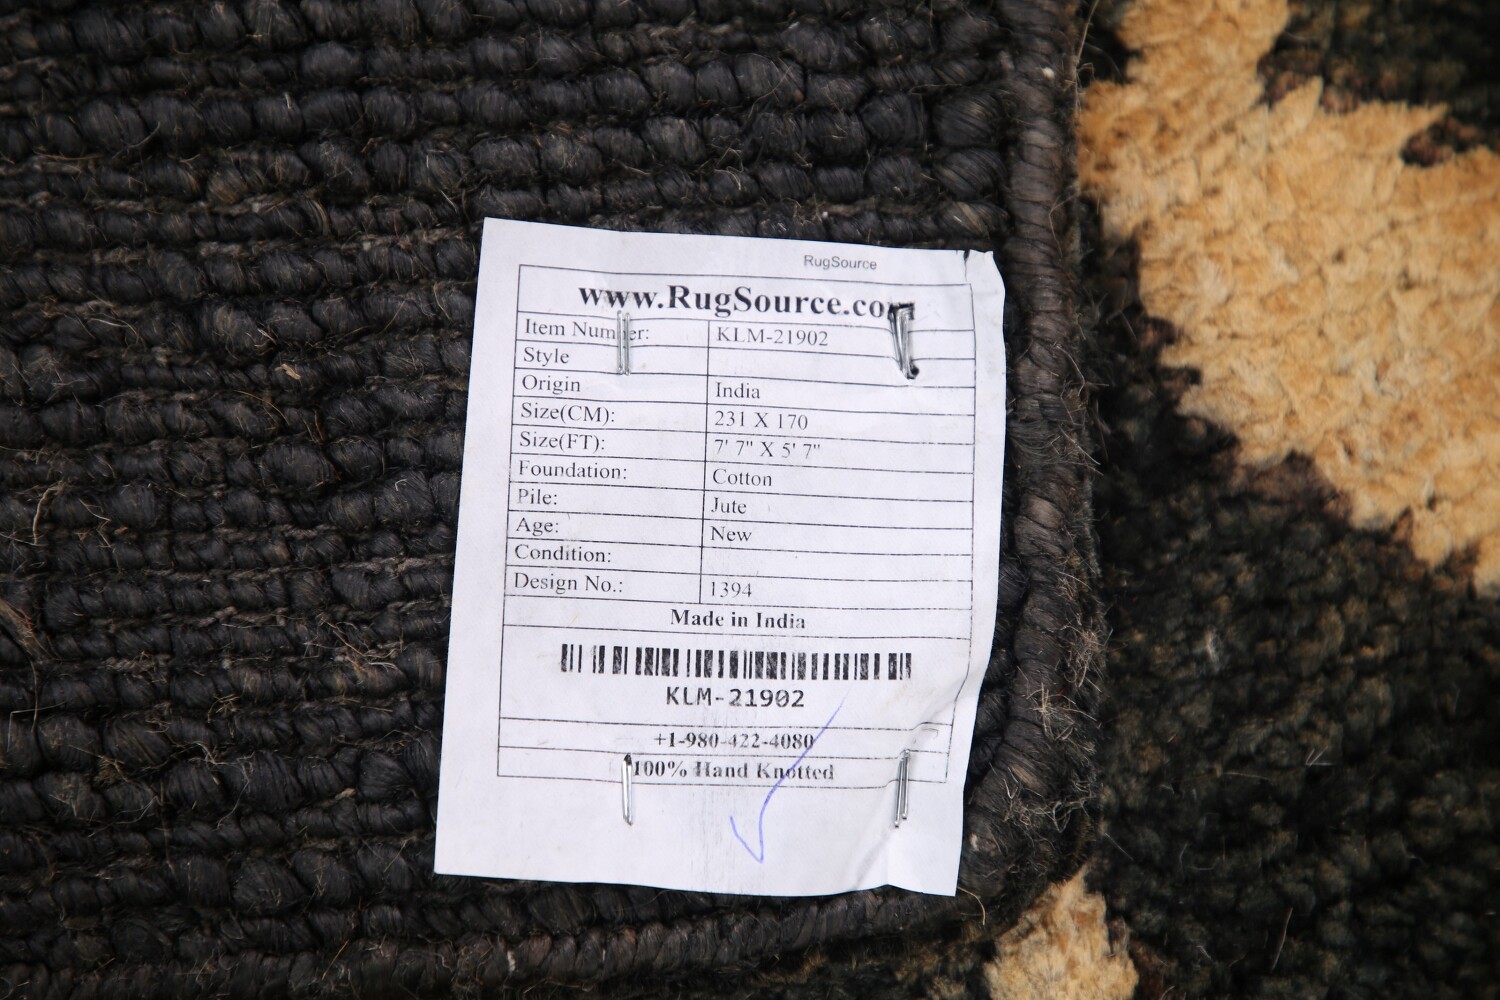 RugSource
www.RugSource.com
Item Number: KLM-21902
Style
Origin India
Size(CM): 231 X 170
Size(FT): 7' 7" X 5' 7"
Foundation: Cotton
Pile: Jute
Age: New
Condition:
Design No.: 1394
Made in India
KLM-21902
+1-980-422-4080
100% Hand Knotted